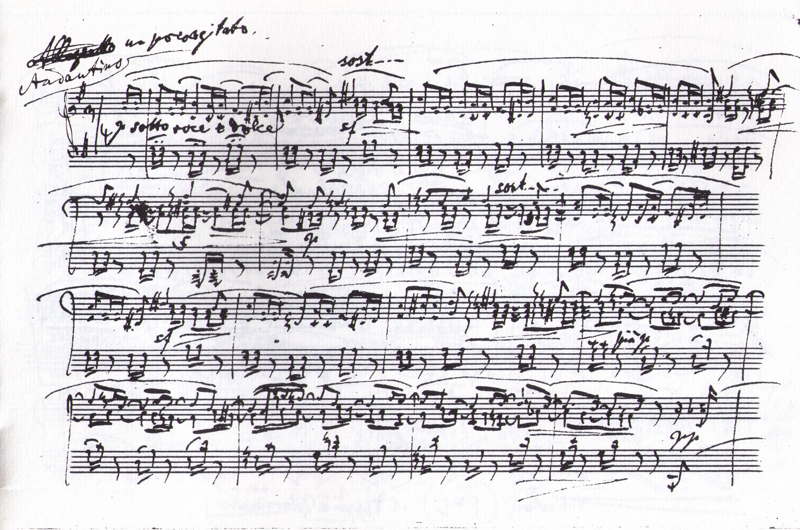 Allegretto un poco agitato.
Andantino
sost.
p sotto voce e dolce
sf
sf
p
sost.
sf
più p
pp